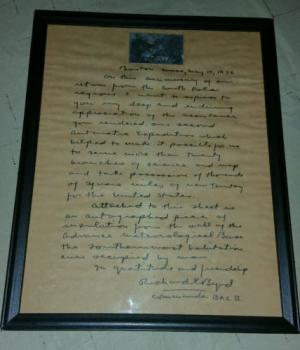 Boston Mass, May 10, 1936
On this anniversary of our
return from the South Polar
regions I want to express to
you my deep and enduring
appreciation of the assistance
you rendered our second
Antarctic Expedition which
helped to make it possible for us
to serve more than twenty
branches of science and map
and take possession of thousands
of square miles of new territory
for the United States.
Attached to this sheet is
an autographed piece of
insulation from the wall of the
Advance Meteorological Base
the southernmost habitation
ever occupied by man
In gratitude and friendship
Richard E Byrd
Commander BAE II